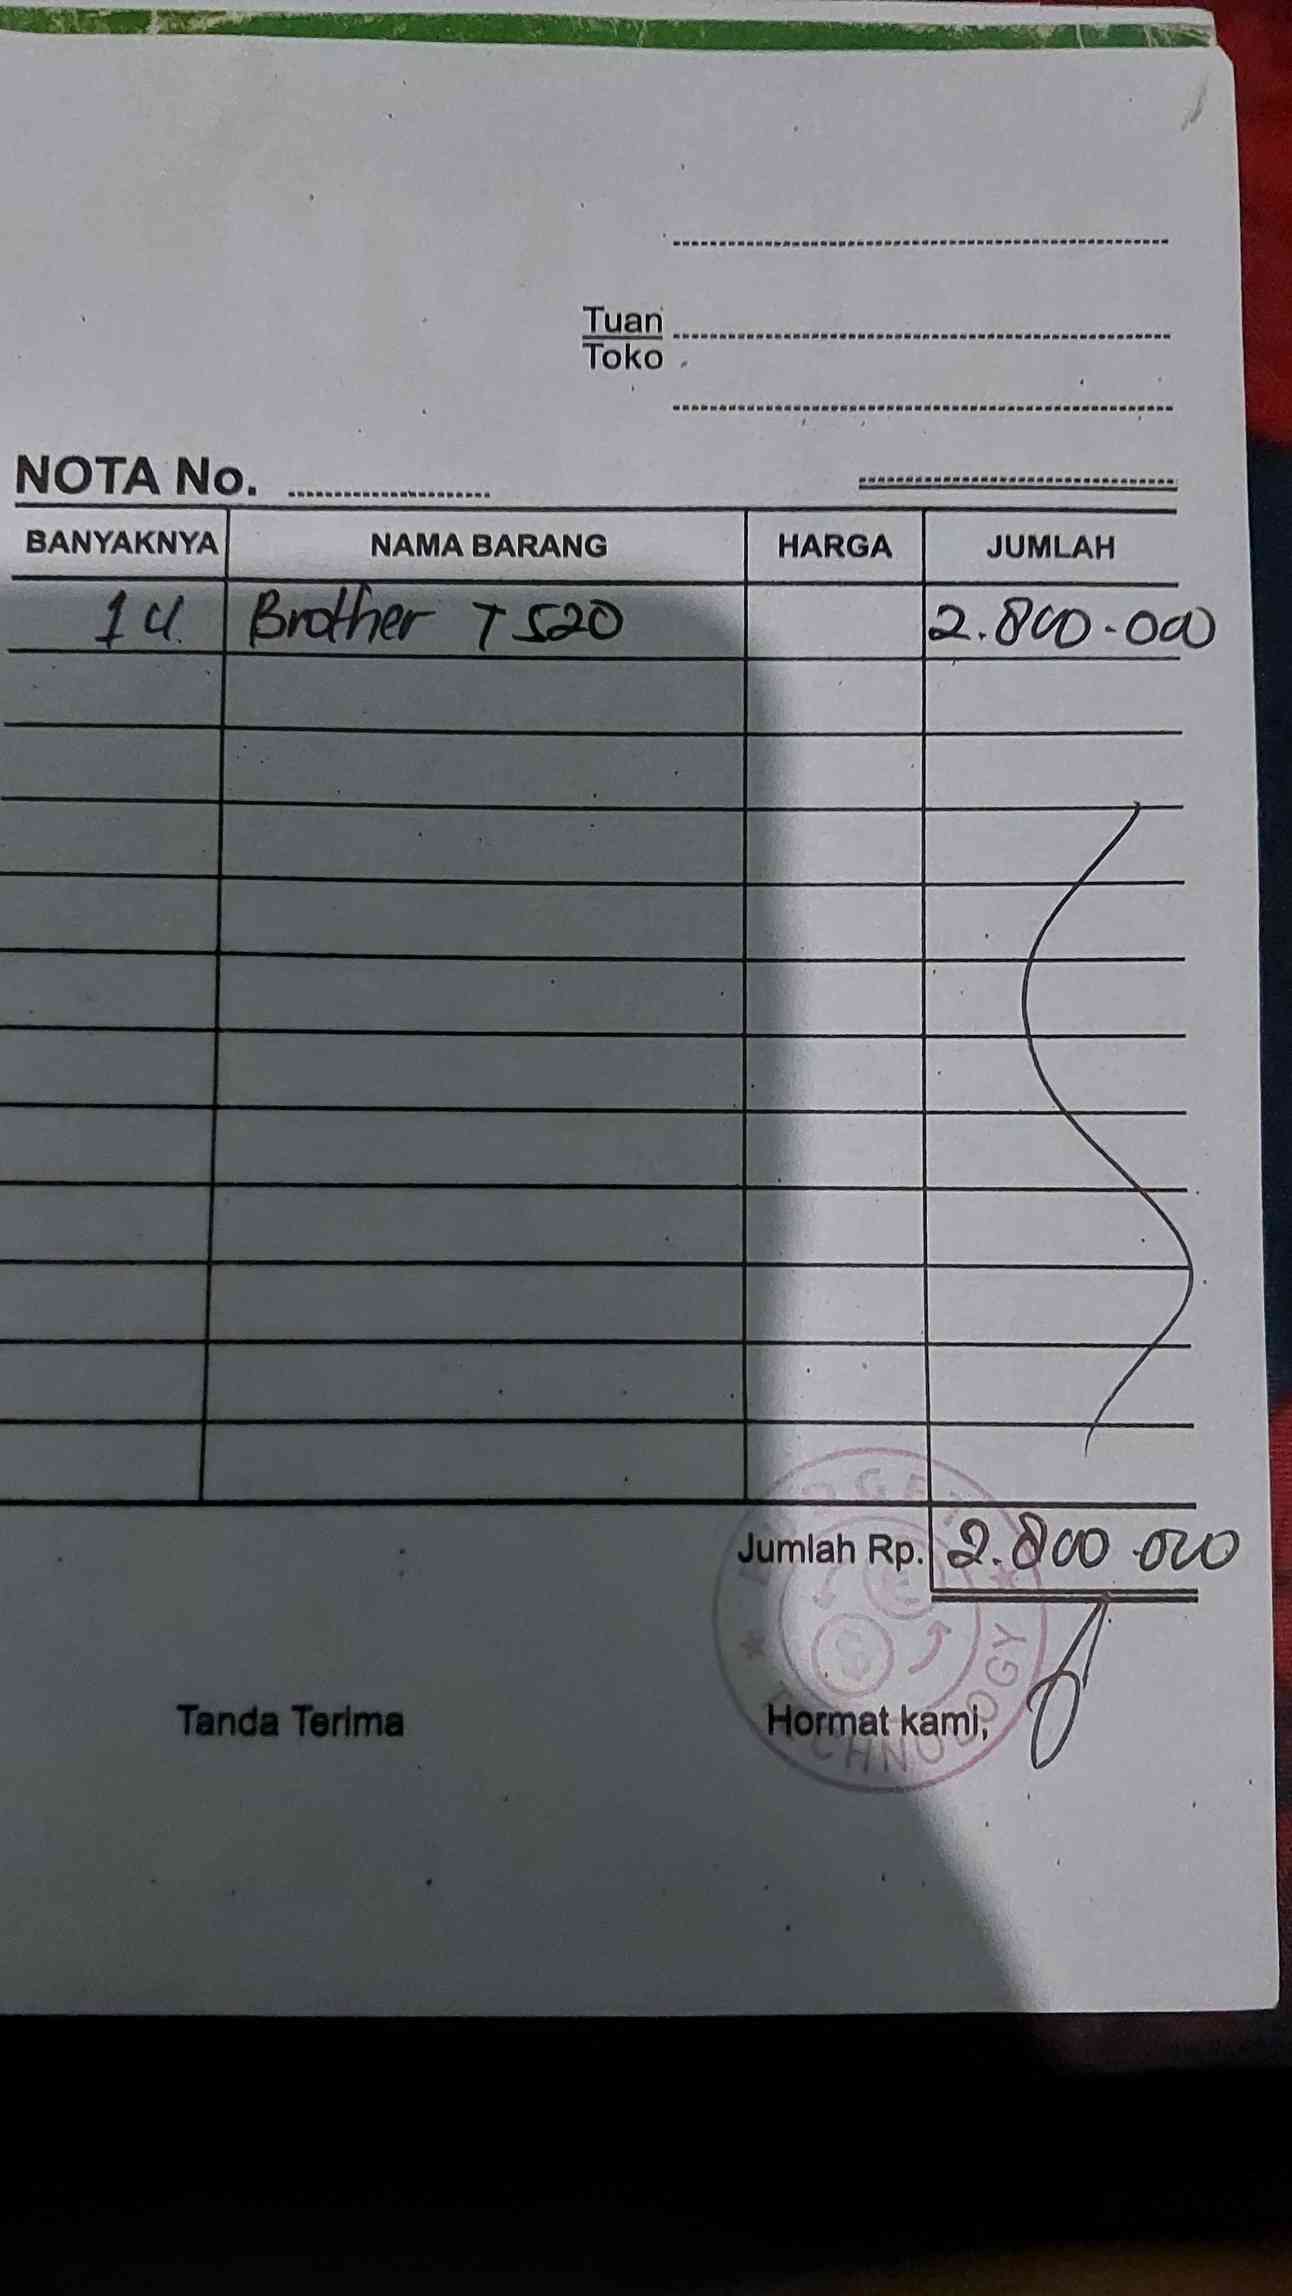 Tuan
Toko
NOTA No.
BANYAKNYA NAMA BARANG HARGA JUMLAH
1 U. Brother T 520 2.800.000
Jumlah Rp. 2.800.000
Tanda Terima Hormat kami,